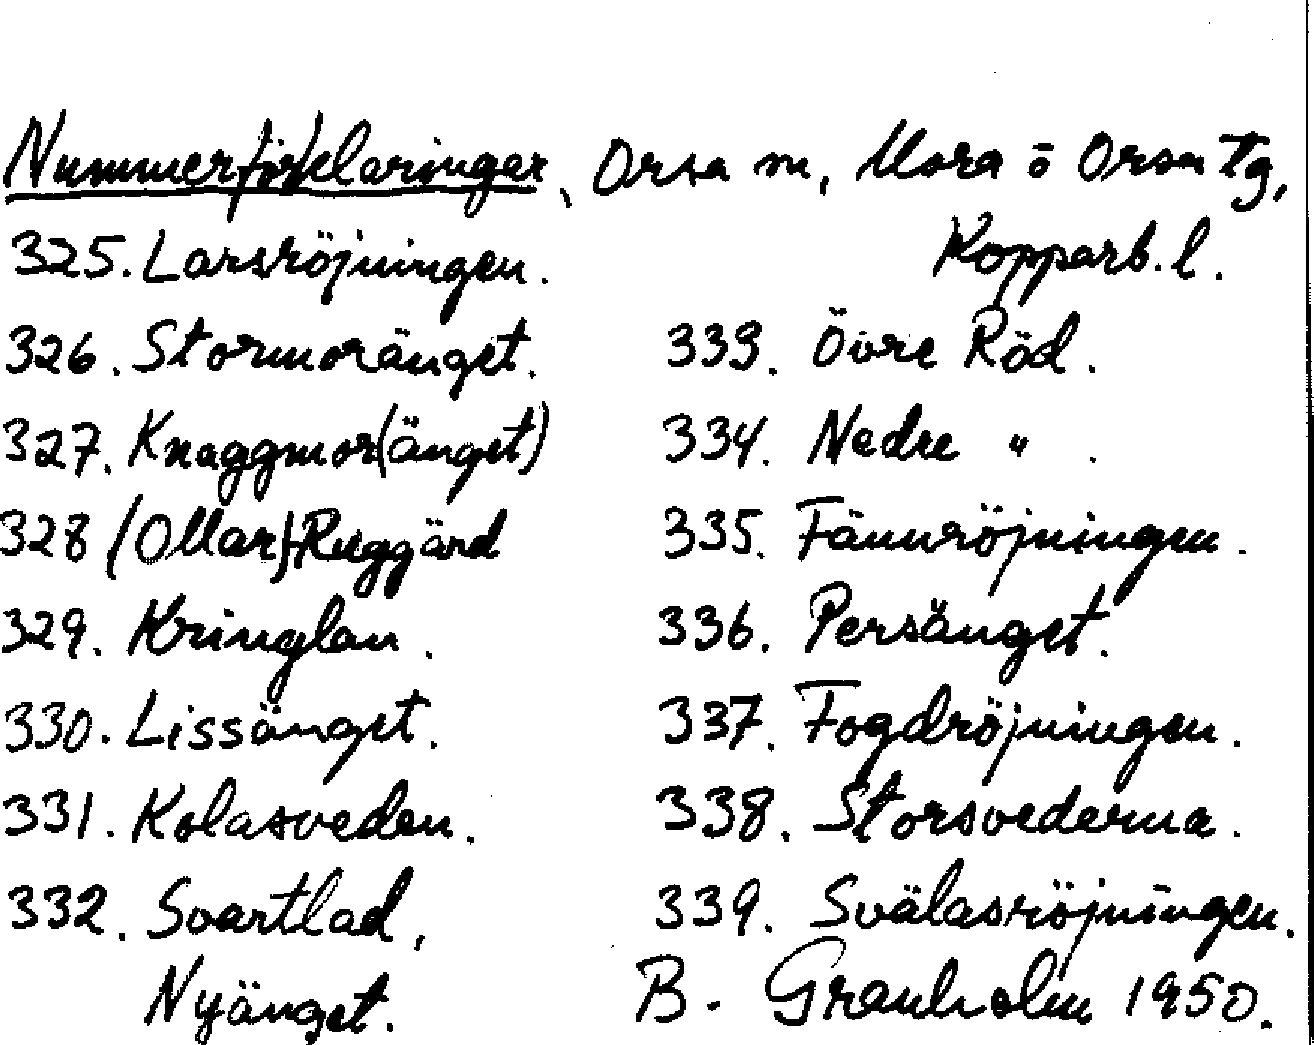 Nummerförklaringar, Orsa sn, Mora o Orsa tg,
Kopparb. l.
325. Larsröjningen.
326. Stormoränget.
327. Knaggmor(änget)
328 (Ollar)-Ruggärd
329. Kringlan.
330. Lissänget.
331. Kolasveden.
332. Svartlad,
Nyänget.
333. Övre Röd.
334. Nedre " .
335. Fännröjningen.
336. Persänget.
337. Fogdröjningen.
338. Storsvederna.
339. Svälasröjningen.
B. Granholm 1950.